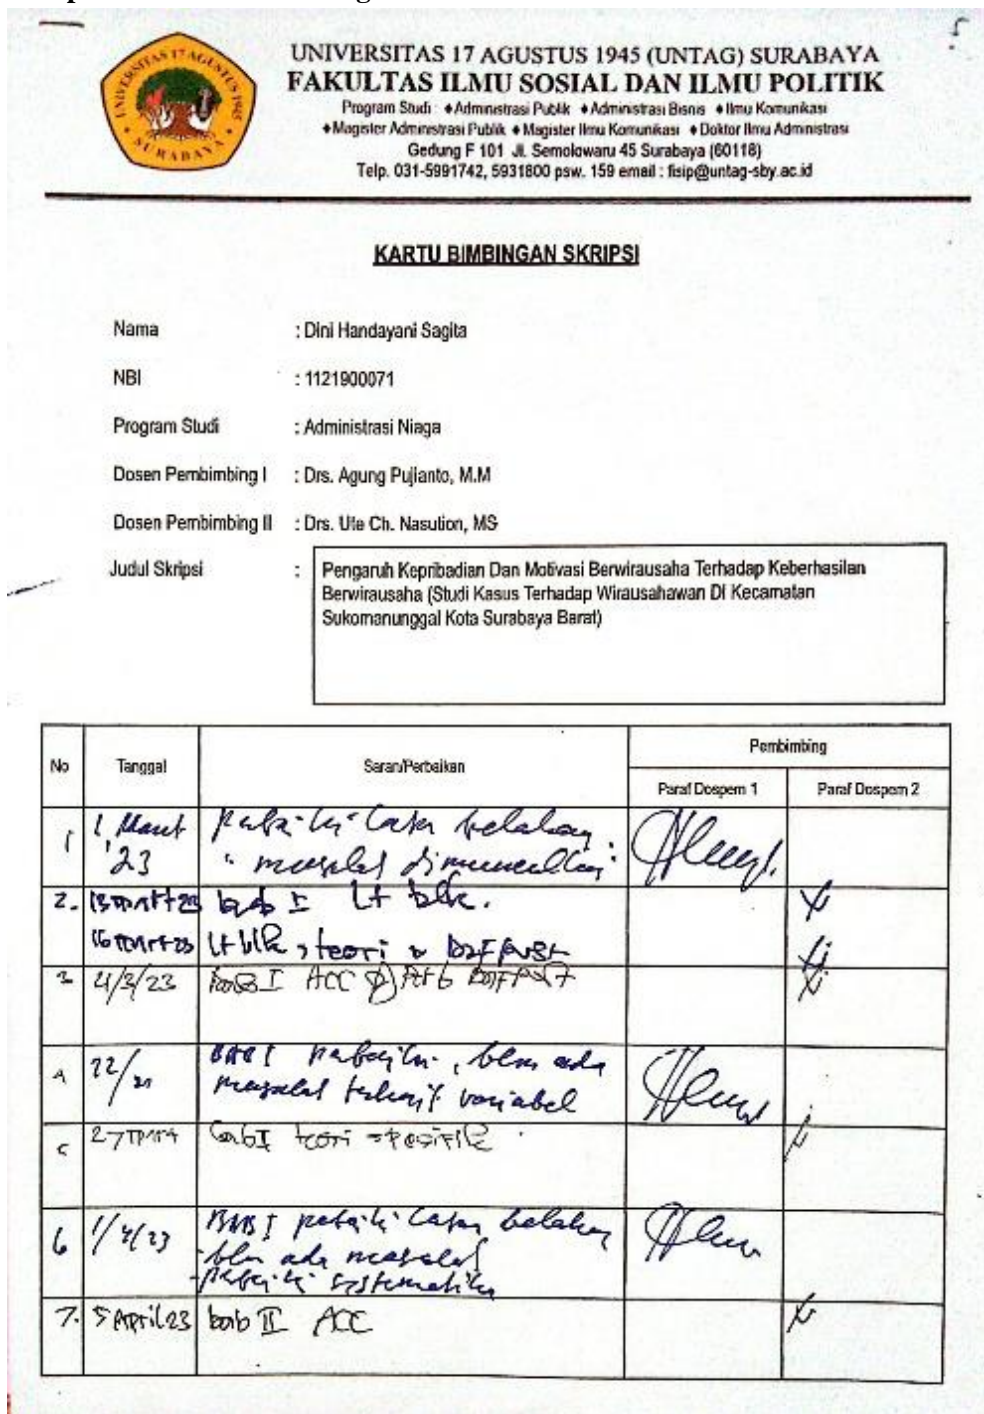 UNIVERSITAS 17 AGUSTUS 1945
SURABAYA
UNIVERSITAS 17 AGUSTUS 1945 (UNTAG) SURABAYA
FAKULTAS ILMU SOSIAL DAN ILMU POLITIK
Program Studi : ♦Administrasi Publik ♦Administrasi Bisnis ♦Ilmu Komunikasi
♦Magister Administrasi Publik ♦Magister Ilmu Komunikasi ♦Doktor Ilmu Administrasi
Gedung F 101 Jl. Semolowaru 45 Surabaya (60118)
Telp. 031-5991742, 5931800 psw. 159 email : fisip@untag-sby.ac.id
KARTU BIMBINGAN SKRIPSI
Nama : Dini Handayani Sagita
NBI : 1121900071
Program Studi : Administrasi Niaga
Dosen Pembimbing I : Drs. Agung Pujianto, M.M
Dosen Pembimbing II : Drs. Ute Ch. Nasution, MS
Judul Skripsi : Pengaruh Kepribadian Dan Motivasi Berwirausaha Terhadap Keberhasilan
Berwirausaha (Studi Kasus Terhadap Wirausahawan Di Kecamatan
Sukomanunggal Kota Surabaya Barat)
No Tanggal Saran/Perbaikan Pembimbing
Paraf Dospem 1 Paraf Dospem 2
1 1 Maret perbaiki latar belakang
'23 masalah dimunculkan
2. bab I lt blk.
lt blk, teori
3 21/3/23 bab I ACC
4 22/ BAB I perbaiki, blm ada
masalah variabel
27 bab I teori spesifik
6 1/4/23 BAB I perbaiki latar belakang
-blm ada masalah
-perbaiki sistematika
7. 5 April 23 bab II ACC